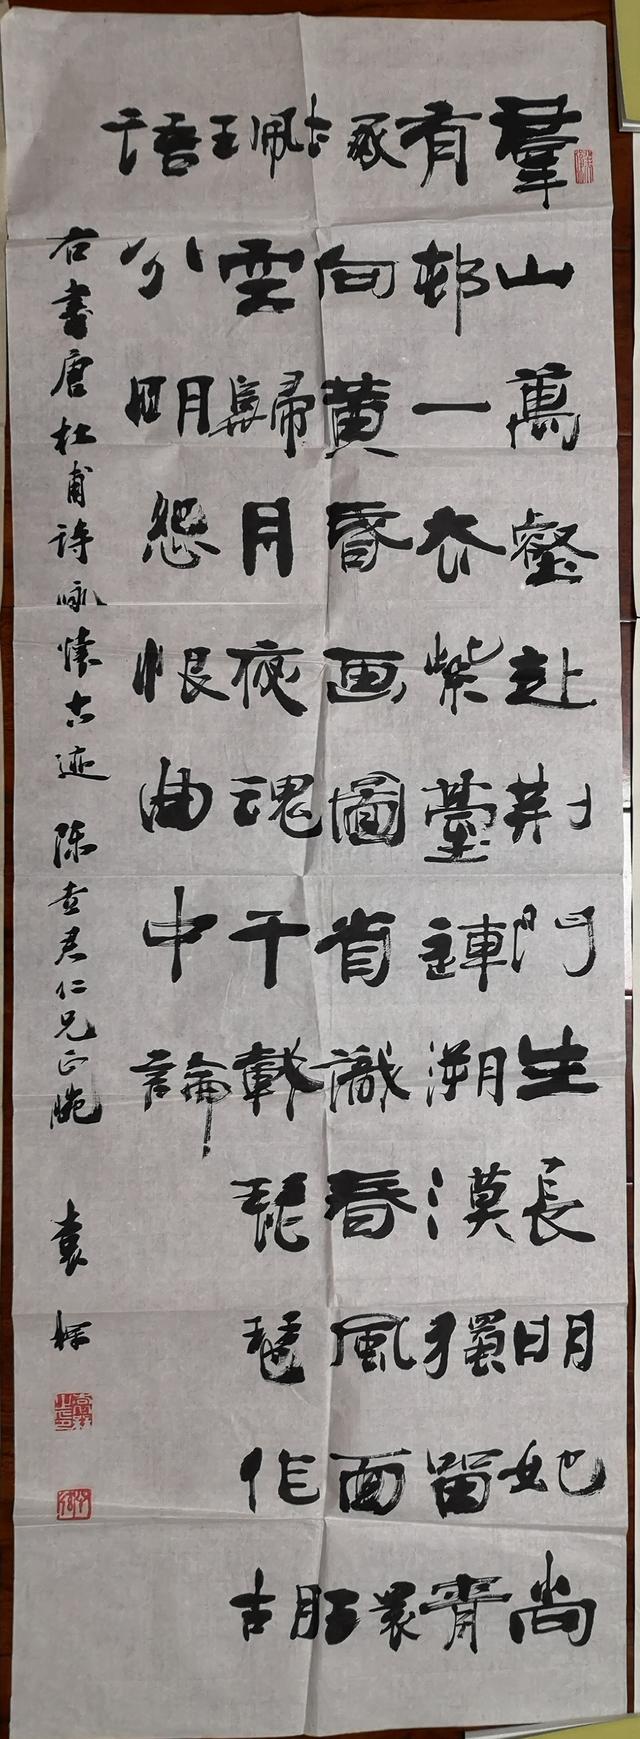 羣山萬壑赴荆門生長明妃尚
有邨一去紫臺連溯漠獨留青
塚向黄昏画圖省識春風面環
珮空歸月夜魂千載琵琶作胡
語分明怨恨曲中論
右書唐杜甫詩咏懷古迹 陈君仁兄正腕 袁輝